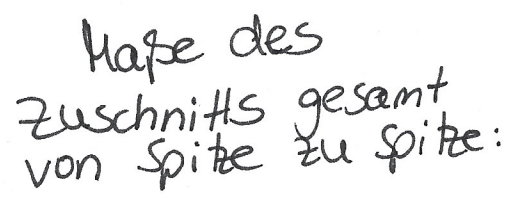 Maße des
Zuschnitts gesamt
von Spitze zu Spitze: